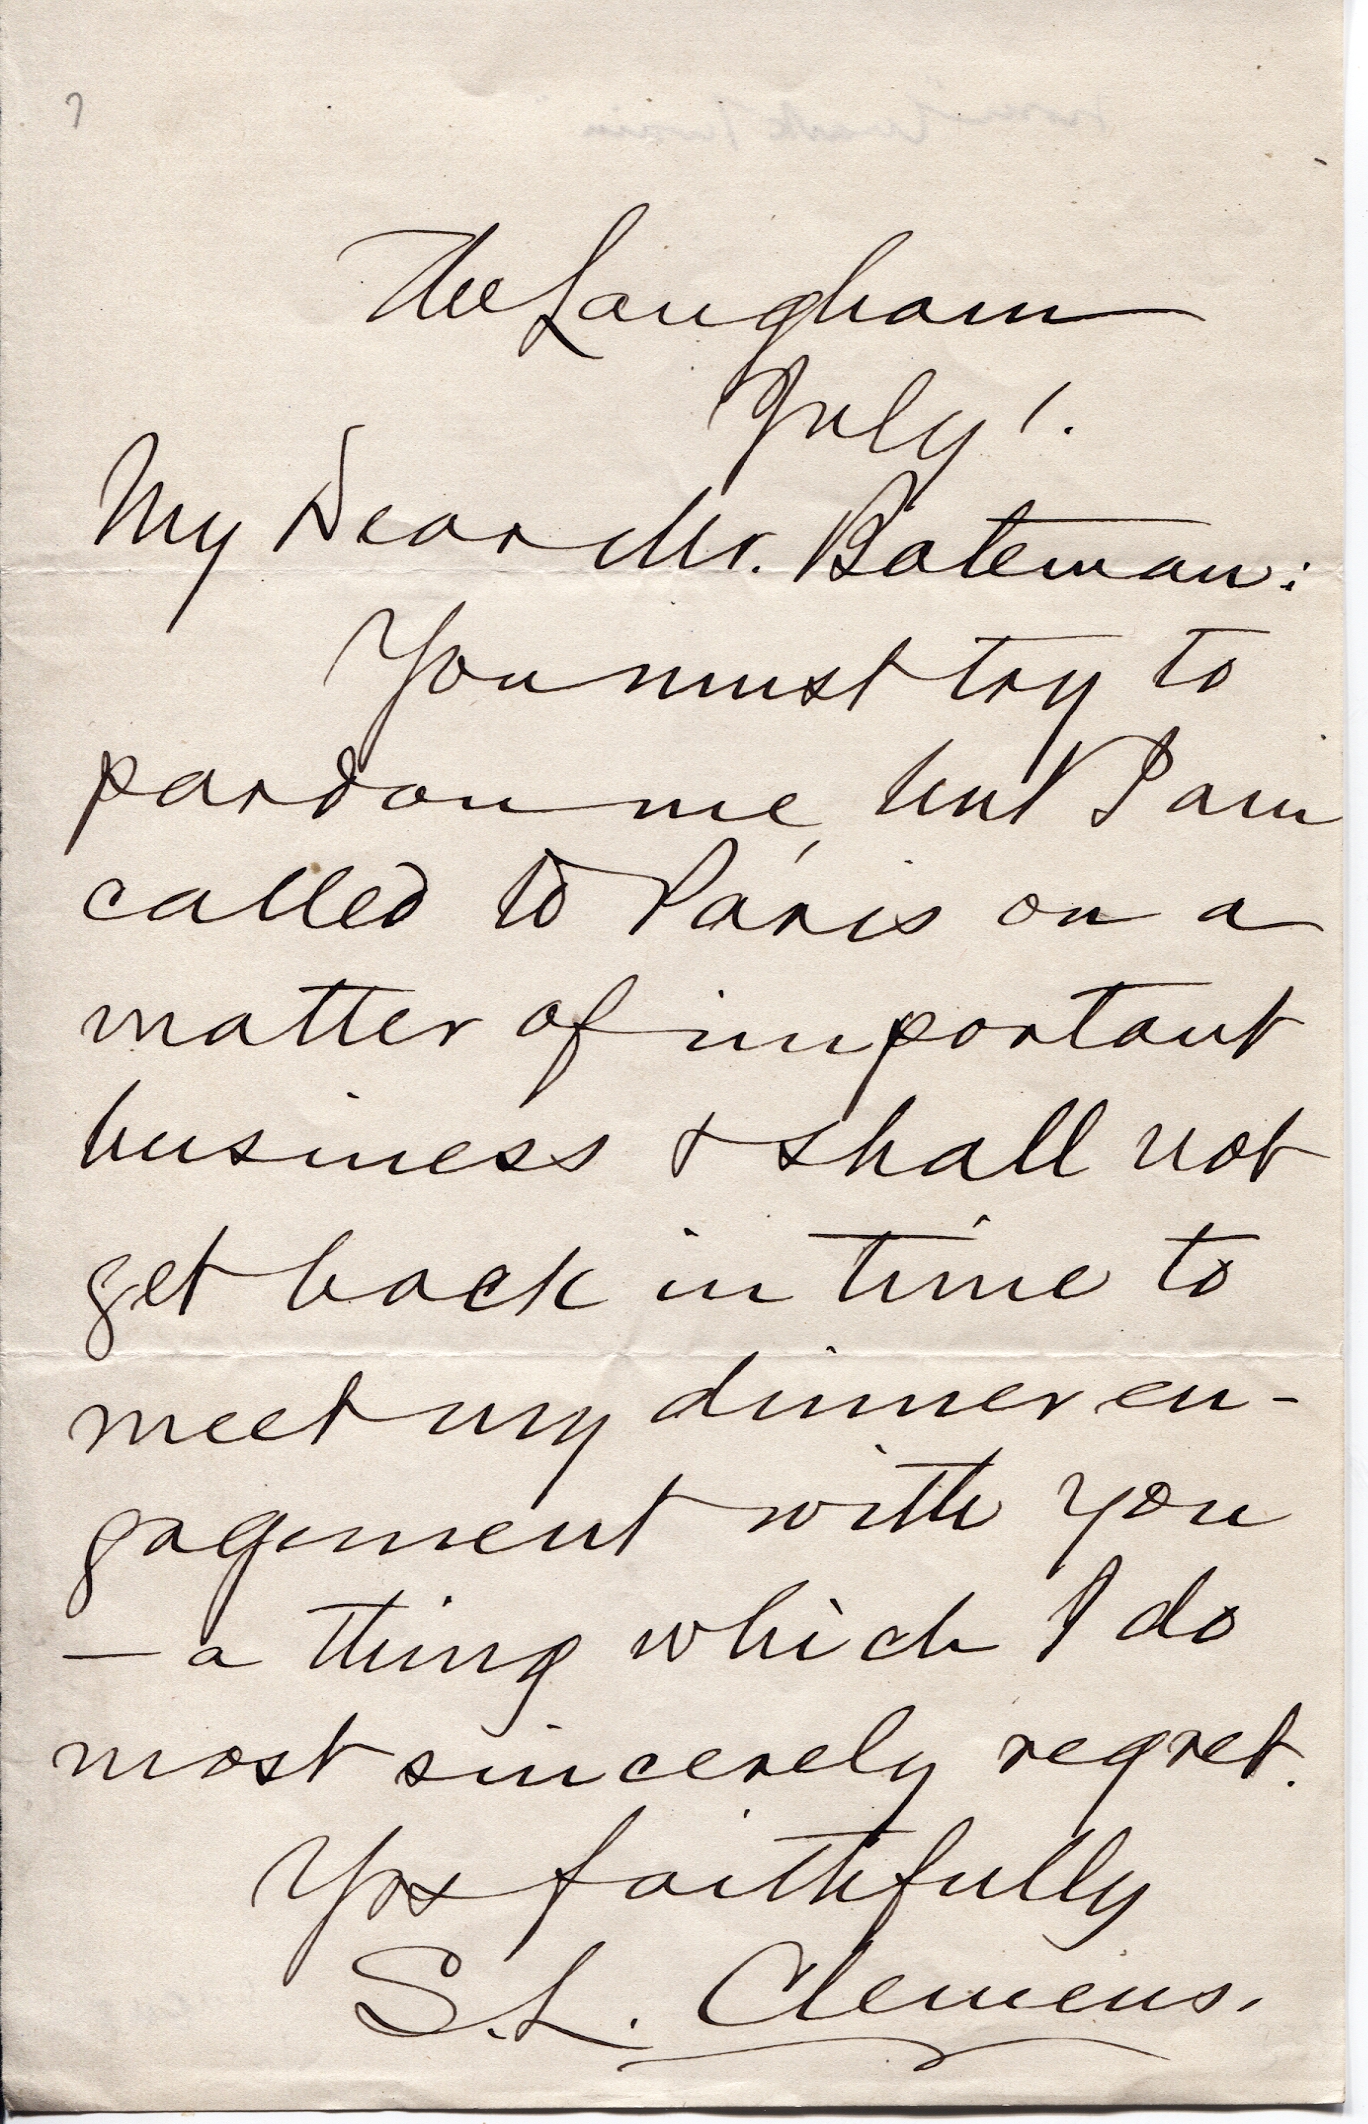 The Langham
July 1.
My Dear Mr. Bateman:
You must try to
pardon me, but I am
called to Paris on a
matter of important
business & shall not
get back in time to
meet my dinner en-
gagement with you
— a thing which I do
most sincerely regret.
Yrs faithfully
S. L. Clemens.